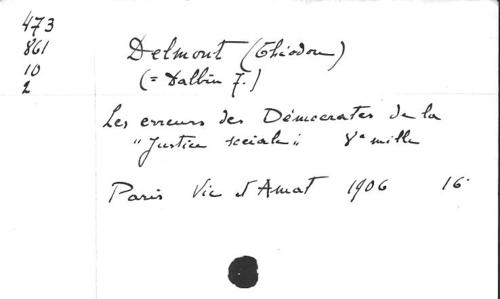 473
861
10
2
Delmont (Théodore)
(= Dalbin F.)
Les erreurs des Démocrates de la
"Justice sociale" 8e mille
Paris Vic et Amat 1906 16°